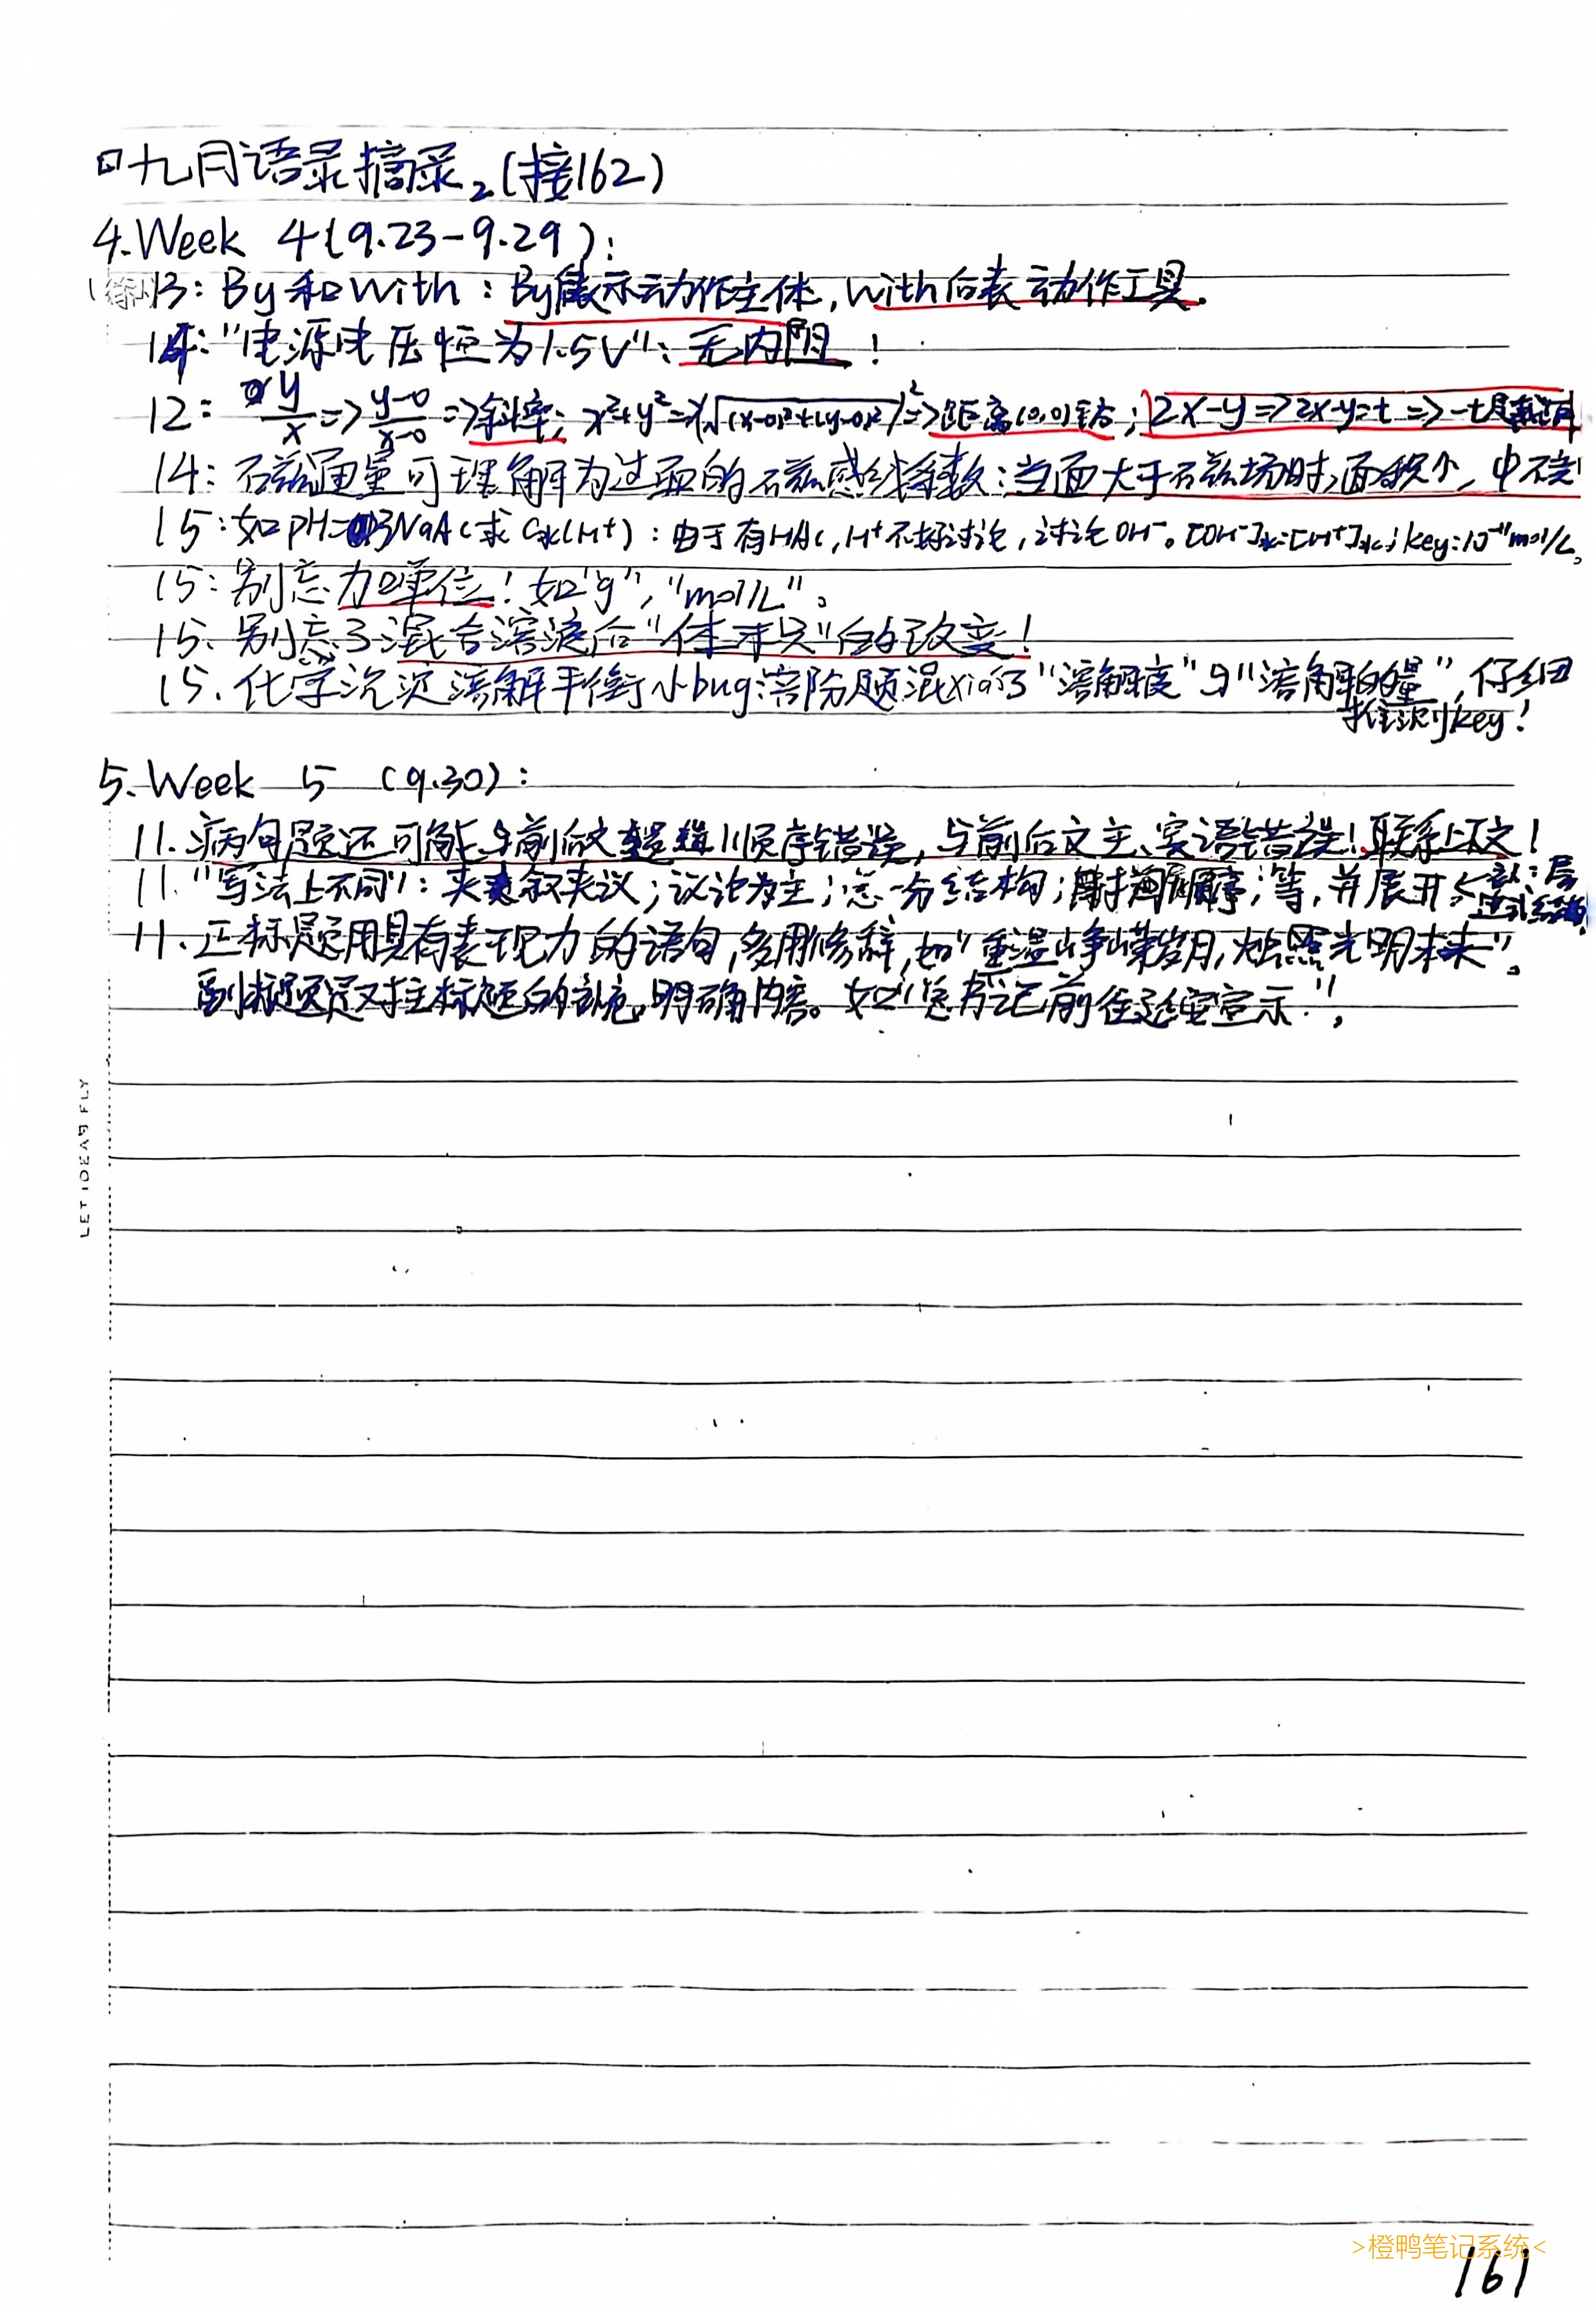 九月语录摘录₂(接162)
4.Week 4(9.23-9.29):
13: By和With: By表示动作主体, with后表动作工具.
14:"电源电压恒为1.5V": 无内阻!
12: y/x => y-0/x-0 =>斜率; x²+y²=(√(x-0)²+(y-0)²)²=>距离(0,0); 2x-y=>2x-y=t=>-t是截距
14: 磁通量可理解为过面的磁感线条数:当面大于磁场时,面积小,中不变
15:如pH=13NaAc求C水(H+):由于有HAc,H+不好讨论,讨论OH-。[OH-]水=[H+]水;key:10⁻¹¹mol/L。
15:别忘加单位!如"g","mol/L"。
15: 别忘了混合溶液后"体积"的改变!
15.化学沉淀溶解平衡小bug:部份题混xiáo了"溶解度"与"溶解的量",仔细
推测key!
5.Week 5 (9.30):
11.病句题还可能与前后文顺序错误,与前后文主、宾语错误!联系上下文!
11."写法上不同":夹叙夹议;议论为主;总-分结构;等,并展开
11.正标题用具有表现力的语句,多用修辞,如"重温峥嵘岁月,烛照光明未来"。
副标题是对主标题的补充,明确内容。如"总书记前往延安宣示"。
LET IDEAS FLY
>橙鸭笔记系统<
161